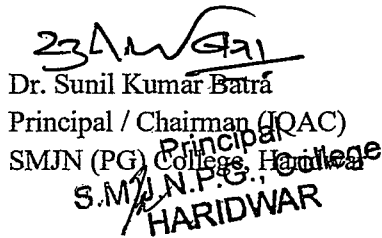 Dr. Sunil Kumar Batra
Principal / Chairman (IQAC)
SMJN (PG) College, Haridwar
Principal
S.M.J.N.P.G., College
HARIDWAR